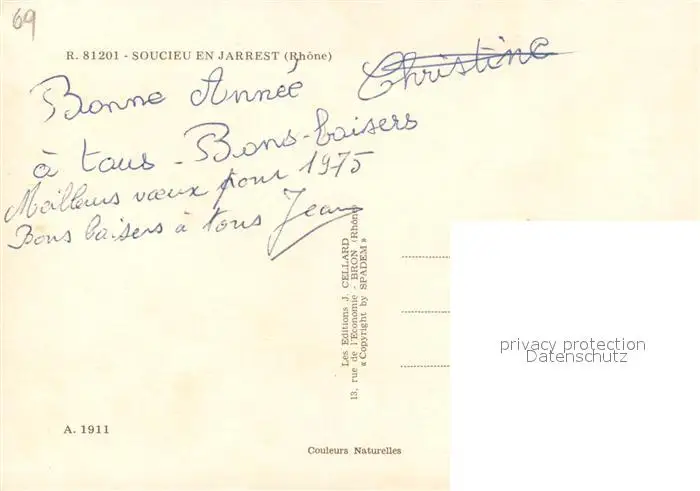 69
R. 81201 - SOUCIEU EN JARREST (Rhône)
Bonne Année Christine
à tous - Bons-baisers
Meilleurs vœux pour 1975
Bons baisers à tous Jean
Les Editions J. CELLARD
13, rue de l'Economie - BRON (Rhône)
« Copyright by SPADEM »
privacy protection
Datenschutz
A. 1911
Couleurs Naturelles